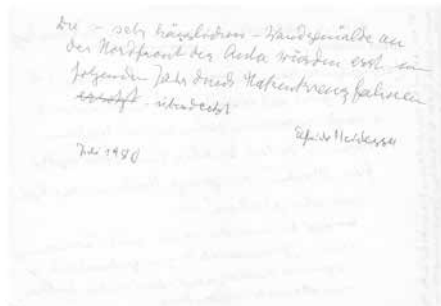 Die – sehr hässlichen – Wandgemälde an
der Nordfront der Aula wurden erst im
folgenden Jahr durch Hakenkreuzfahnen
ersetzt überdeckt
Juli 1980